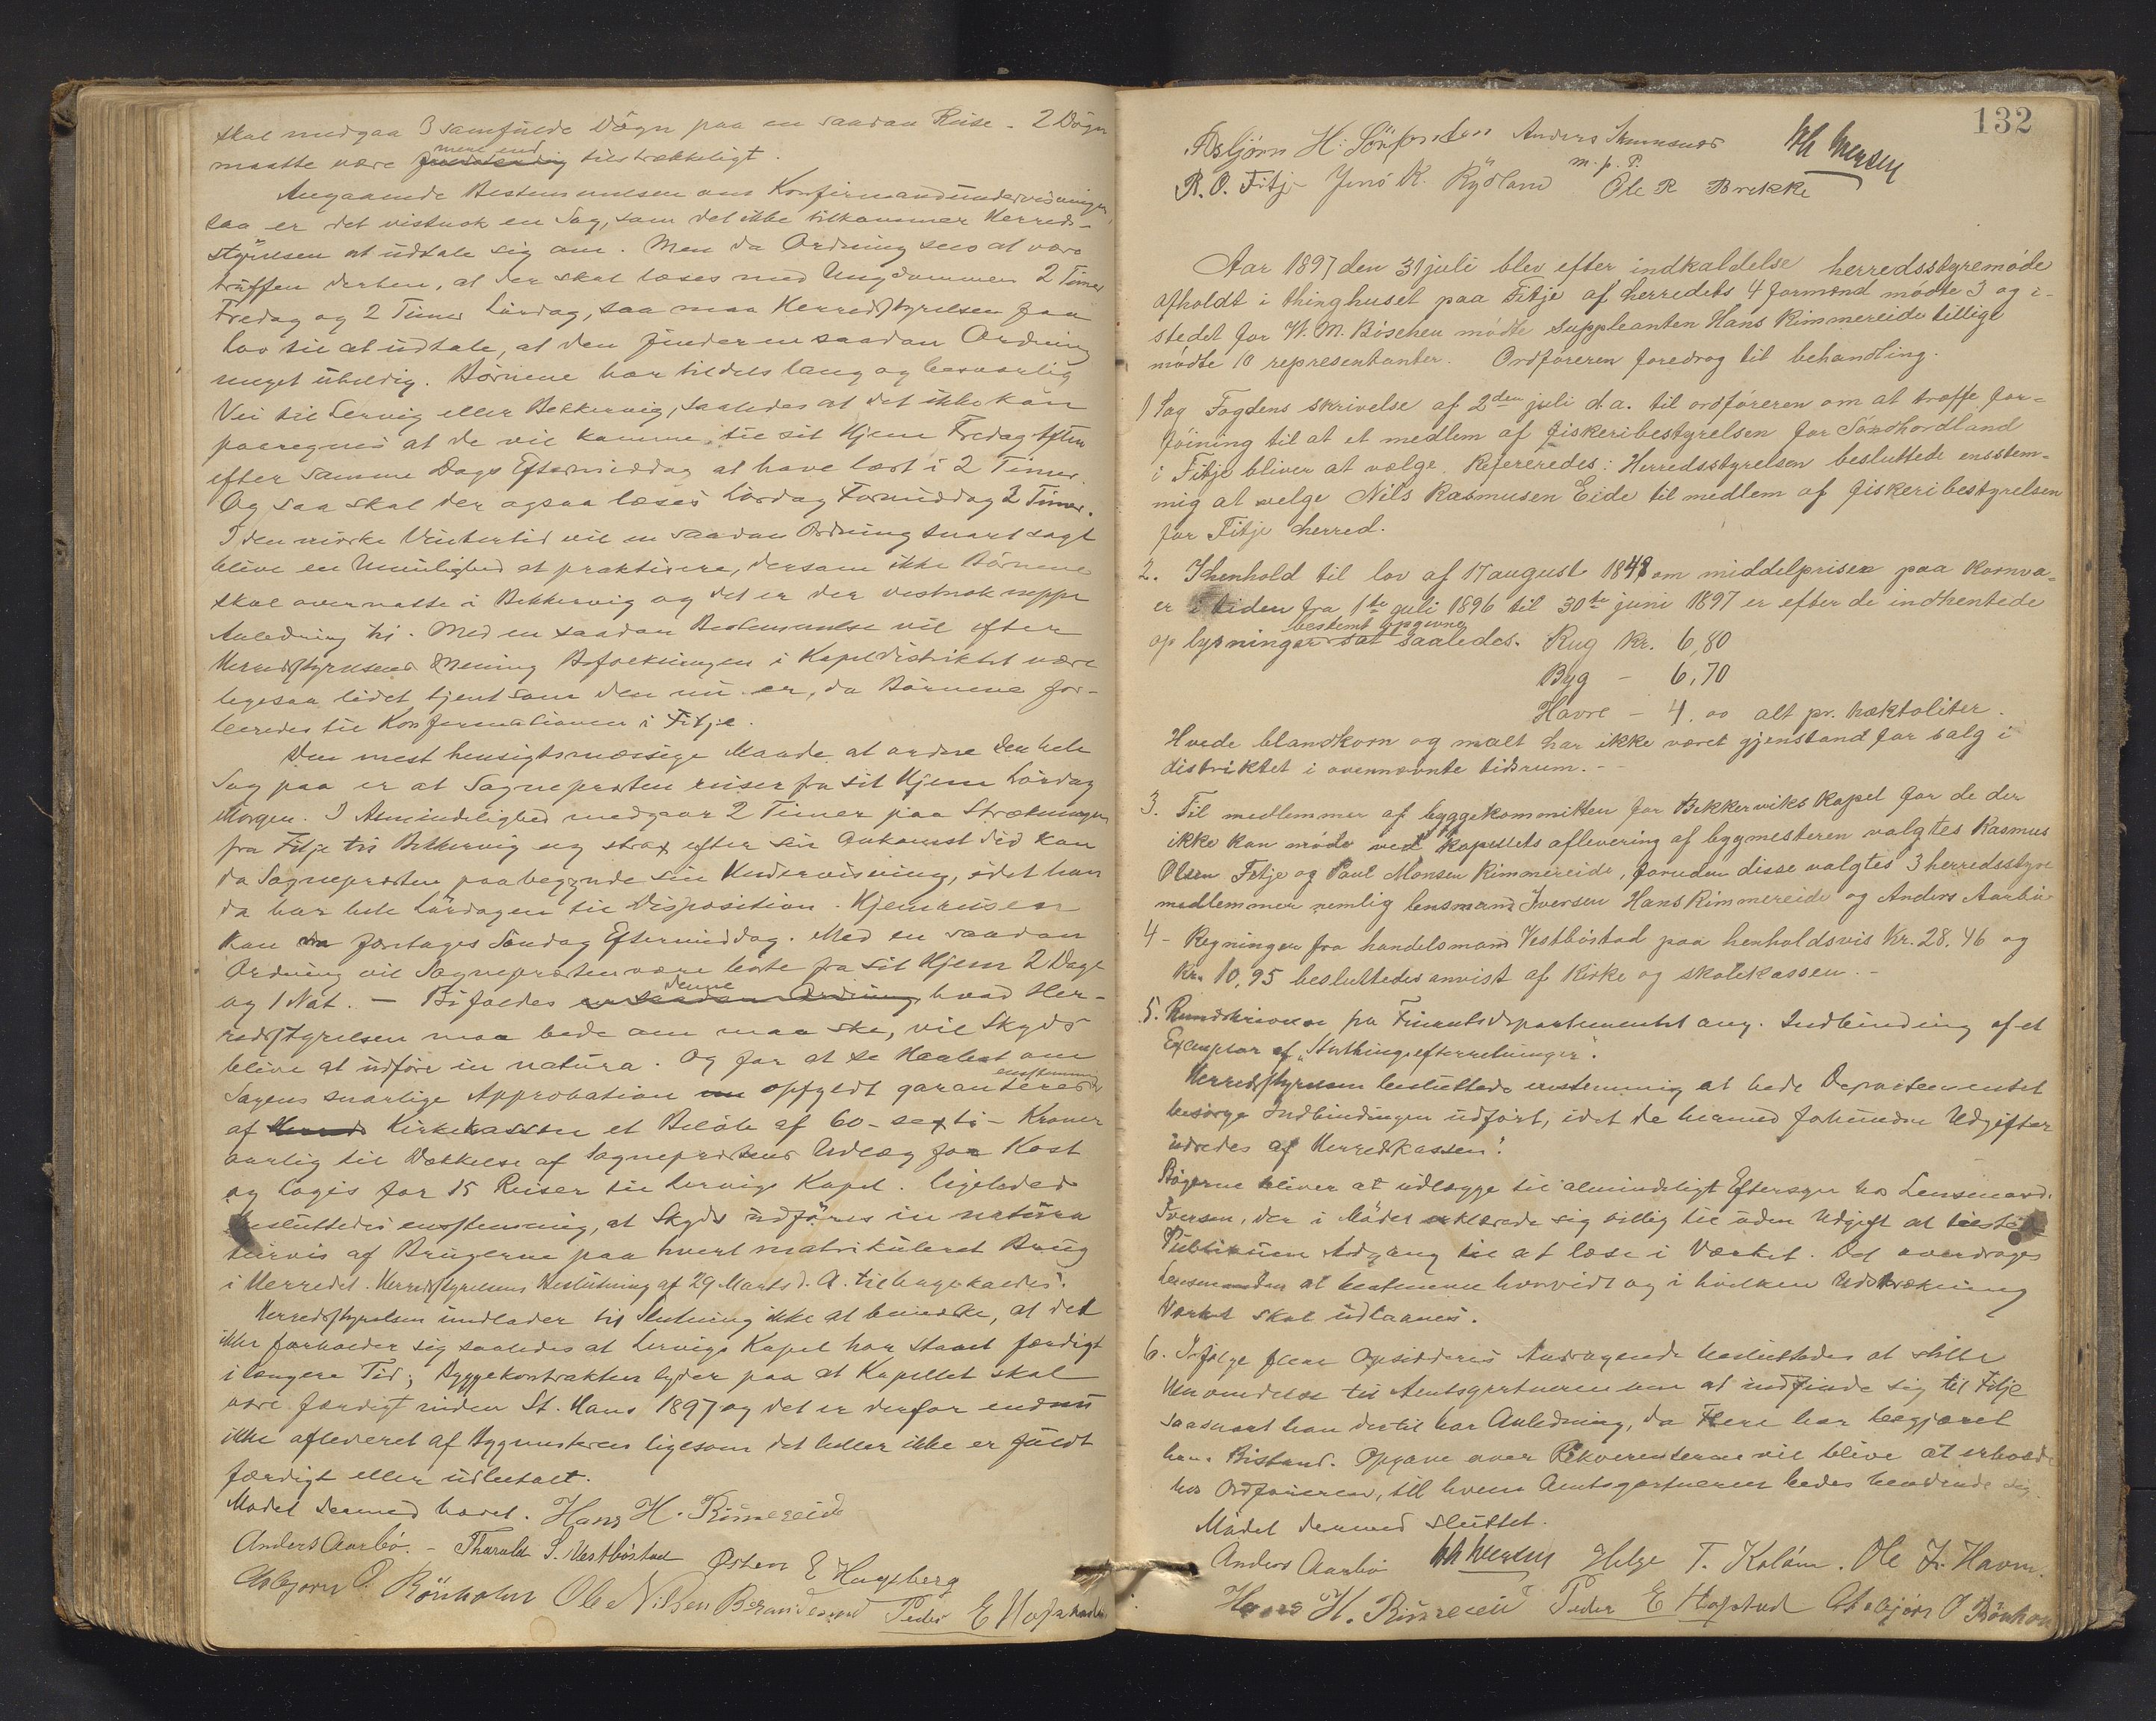 skal medgaa 3 samfulde Døgn paa en saadan Reise - 2 Døgn
maatte være mere end tilstrækkeligt.
Angaaende Bestemmelsen om Konfirmandundervisningen,
saa er det vistnok en Sag, som det ikke tilkommer Herreds-
styrelsen at udtale sig om. Men da Ordning sees at være
truffen derhen, at der skal læses med Ungdommen 2 Timer
Fredag og 2 Timer Lördag, saa maa Herredsstyrelsen faa
Lov til at udtale, at den finder en saadan Ordning
meget uheldig. Börnene har tildels lang og besværlig
Vei til Lervig eller Bekkervig, saaledes at det ikke kan
paaregnes at de vil komme til sit Hjem Fredag Aften
efter samme Dags Eftermiddag at have læst i 2 Timer.
Og saa skal der ogsaa læses Lördag Formiddag 2 Timer.
I den mörke Vintertid vil en saadan Ordning snart sagt
blive en Umulighed at praktisere, dersom ikke Börnene
skal overnatte i Bekkervig og det er der vistnok neppe
Anledning til. Med en saadan Bestemmelse vil efter
Herredsstyrelsens Mening Befolkningen i Kapeldistriktet være
ligesaa lidet tjent som den nu er, da Börnene for-
beredes til Konfirmationen i Fitje.
Den mest hensigtsmæssige Maade at ordne den hele
Sag paa er at Sognepresten reiser fra sit Hjem Lördag
Morgen. I Almindelighed medgaar 2 Timer paa Strækningen
fra Fitje til Bekkervig og strax efter sin Ankomst did kan
da Sognepresten paabegynde sin Undervisning, idet han
da har hele Lördagen til Disposition. Hjemreisen
kan foretages Söndag Eftermiddag. Med en saadan
Ordning vil Sognepresten være borte fra sit Hjem 2 Dage
og 1 Nat. - Bifaldes denne en saadan Ordning, hvad Her-
redsstyrelsen maa bede om maa ske, vil Skyds
blive at udføre in natura. Og for at se Haabet om
Sagens snarlige Approbation opfyldt garanteredes enstemmig
af Kirkekassen et Belöb af 60 - sexti - Kroner
aarlig til Dækkelse af Sogneprestens Udlæg for Kost
og Logis for 15 Reiser til Lervigs Kapel. Ligeledes
besluttedes enstemmig, at Skyds udföres in natura
turvis af Brugerne paa hvert matrikuleret Brug
i Herredet. Herredsstyrelsens Beslutning af 29 Marts d. A. tilbagekaldes.
Herredsstyrelsen undlader til Slutning ikke at bemerke, at det
ikke forholder sig saaledes at Lervigs Kapel har staaet færdigt
i længere Tid; Byggekontrakten lyder paa at Kapellet skal
være færdigt inden St. Hans 1897 og det er derfor endnu
ikke afleveret af Bygmesteren ligesom det heller ikke er fuldt
færdigt eller udbetalt.
Mödet dermed hævet. Hans H. Rimereide
Anders Aarbö. - Tharald S. Vestböstad Østen E Hageberg
Asbjørn O. Rönholm Ole Nilsen Brandesund Peder E Hofstad
132
Asbjörn H. Sönfonden Anders m. p. P.
R. O. Fitje Jens K. Rydland Ole R Brekke
Aar 1897 den 31 juli blev efter indkaldelse herredsstyremöde
afholdt i thinghuset paa Fitje af herredets 4 formænd mödte 3 og i-
stedet for W. M. Böschen mödte suppleanten Hans Rimmereide tillige
mödte 10 representanter. Ordføreren foredrog til behandling.
1 Sag Fogdens skrivelse af 2den juli d.a. til ordföreren om at træffe for-
föining til at et medlem af fiskeribestyrelsen for Söndhordland
i Fitje bliver at vælge. Refereredes: Herredsstyrelsen besluttede enstem-
mig at velge Nils Rasmusen Eide til medlem af fiskeribestyrelsen
for Fitje herred.
2. I henhold til lov af 17 august 1848 om middelprisen paa kornva-
er i tiden fra 1ste juli 1896 til 30te juni 1897 er efter de indhentede
oplysninger bestemt opgivne sat saaledes. Rug Kr. 6,80
Byg - 6,70
Havre - 4.00 alt pr. hæktoliter.
Hvede blandkorn og malt har ikke været gjenstand for salg i
distriktet i ovennævnte tidsrum. -
3. Til medlemmer af byggekommitten for Bekkerviks Kapel for de der
ikke kan möde ved kapellets aflevering af bygmesteren valgtes Rasmus
Olsen Fitje og Paul Monsen Rimmereide, foruden disse valgtes 3 herredsstyre
medlemmer nemlig lensmand Iversen Hans Rimmereide og Anders Aarbö
4 - Regninger fra handelsmand Vestböstad paa henholdsvis Kr. 28.46 og
Kr. 10,95 besluttedes anvist af Kirke og skolekassen. -
5. Rundskrivelse fra Finantsdepartementet ang. Indbinding af et
Exemplar af "Storthingsefterretninger".
Herredsstyrelsen besluttede enstemmig at bede Departementet
besörge Indbindingen udfört, idet de hermed forbundne Udgifter
udredes af Herredskassen.
Bøgerne bliver at udlægge til almindeligt Eftersyn hos Lensmand
Iversen, der i Mödet erklærede sig villig til uden Udgift at tilstede
Publikum Adgang til at læse i Værket. Det overdrages
Lensmanden at bestemme hvorvidt og i hvilken Udstrækning
Værket skal udlaanes.
6. Ifølge flere Opsidderes Andragende besluttedes at stille
Henvendelse til Amtsgartneren om at indfinde sig til Fitje
saasnart han dertil har Anledning, da Flere har begjæret
hans Bistand. Opgave over Rekvirenterne vil blive at erholde
hos Ordføreren, til hvem Amtsgartneren bedes henvende sig.
Mödet dermed sluttet.
Anders Aarbö Helge T. Koløen. Ole J. Havn.
Hans H. Rimereid Peder E Hofstad Asbjörn O Rönholm